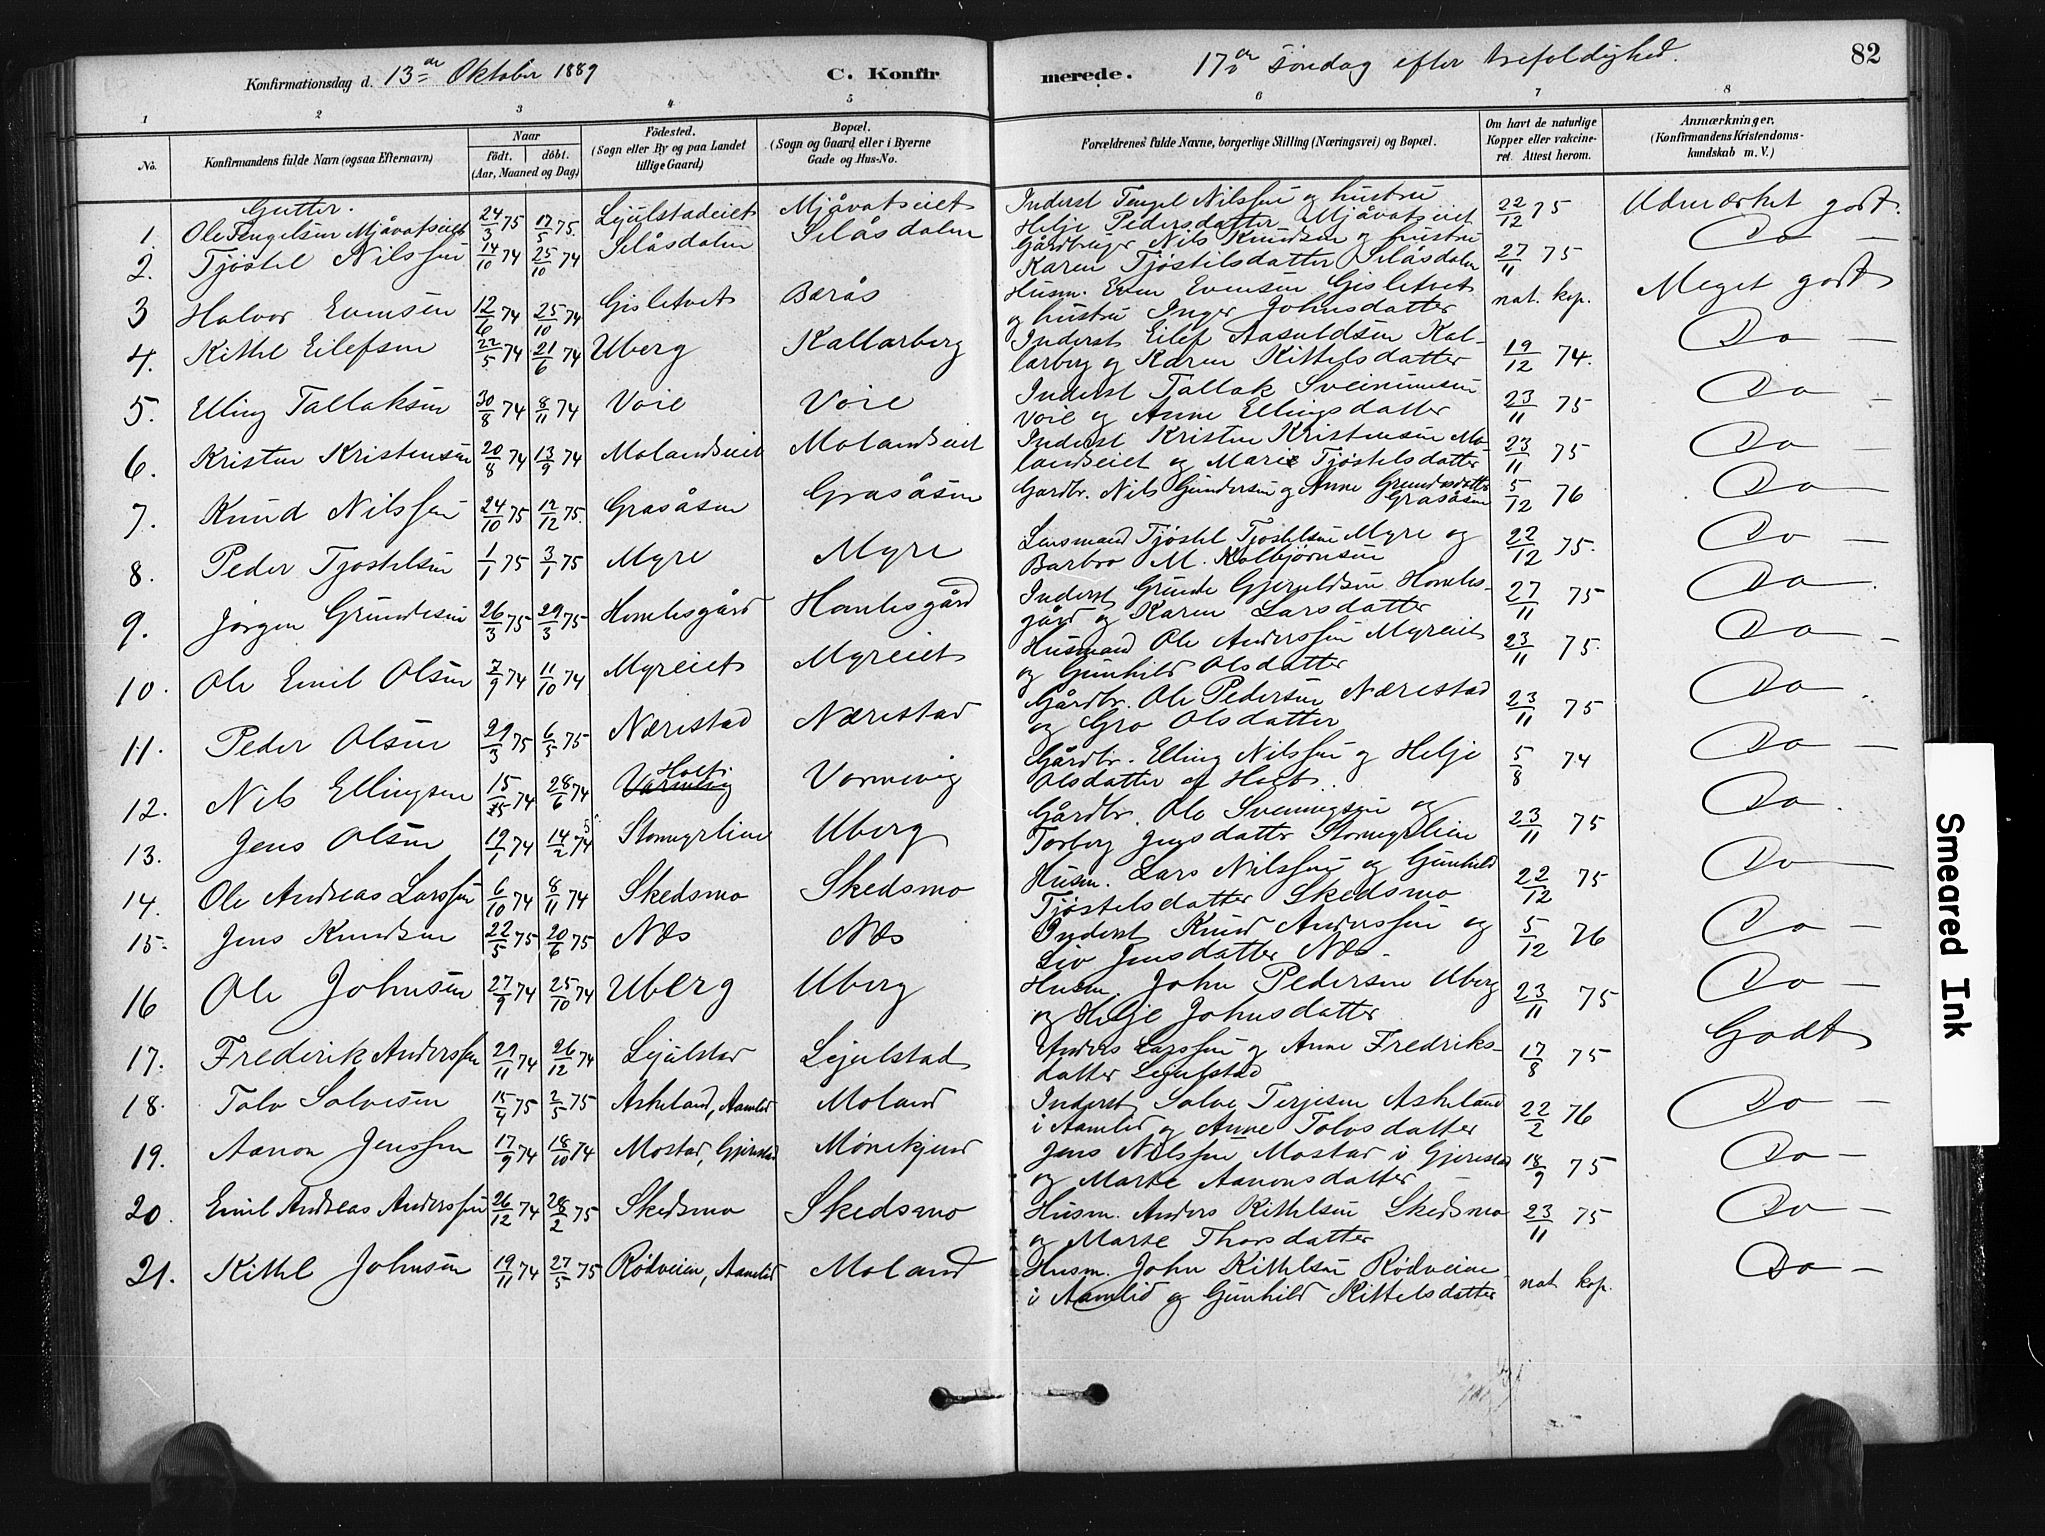 82
Konfirmationsdag d. 13de Oktober 1889 C. Konfirmerede. 17de søndag efter trefoldighed.
1 2 3 4 5 6 7 8
No. Konfirmandens fulde Navn (ogsaa Efternavn) Naar født. døbt. (Aar, Maaned og Dag) Fødested. (Sogn eller By og paa Landet tillige Gaard) Bopæl. (Sogn og Gaard eller i Byerne Gade og Hus-No.) Forældrenes fulde Navne, borgerlige Stilling (Næringsvei) og Bopæl. Om havt de naturlige Kopper eller vakcineret. Attest herom. Anmærkninger. (Konfirmandens Kristendomskundskab m. V.)
Gutter.
1. Ole Tengelsen Mjåvatseiet 24/3 75 17/5 75. Mjåvatseiet Inderst Tengel Nilssen og hustru Helje Pedersdatter Mjåvatseiet 22/12 75 Udmærket godt.
2. Tjøstel Nilssen 14/10 74 25/10 74 Selåsdalen Selåsdalen Gårdbruger Nils Knudsen og hustru Karen Tjøstilsdatter Selåsdalen 27/11 75 Do —
3 Halvor Evensen 12/6 74 25/10 74 Gisletvet Berås Husm. Even Evensen Gisletvet og hustru Inger Johnsdatter nat. kop. Meget godt
4. Kittel Eilefsen 22/5 74 21/6 74 Uberg Kallarberg Inderst Eilef Aasuldsen Kallarberg og Karen Kittelsdatter 19/12 74. Do —
5. Elling Tallaksen 30/8 74 8/11 74 Voie Voie Inderst Tallak Sveinunsen Voie og Anne Ellingsdatter 23/11 75 Do —
6. Kristen Kristensen 20/8 74 13/9 74 Molandseiet Molandseiet Inderst Kristen Kristensen Molandseiet og Marie Tjøstelsdatter 23/11 75 Do —
7. Knud Nilssen 24/10 75 12/12 75. Grasåsen Grasåsen Gardbr. Nils Gundersen og Anne Grundesdatter Grasåsen 5/12 76 Do —
8. Peder Tjøstelsen 1/1 75 3/1 75 Myre Myre Lensmand Tjøstel Tjøstelsen Myre og Barbro M. Kolbjørnsen 22/12 75. Do —
9. Jørgen Grundesen 26/3 75 29/3 75 Homlesgård Homlesgård Inderst Grunde Gjeruldsen Homlesgård og Karen Larsdatter 27/11 75 Do
10. Ole Emil Olsen 7/9 74 11/10 74 Myreiet Myreiet Husmand Ole Anderssen Myreiet og Gunhild Olsdatter 23/11 75. Do —
11. Peder Olsen 29/3 75 6/5 75 Nærestad Nærestad Gårdbr. Ole Pedersen Nærestad og Gro Olsdatter 23/11 75 Do
12. Nils Ellingsen 15/5 74 28/6 74 Holt Vormevig Gårdbr. Elling Nilssen og Helje Olsdatter af Holt. 5/8 74 Do —
13. Jens Olsen 19/1 74 14/2 74 Stormyrlien Uberg Gårdbr. Ole Svenningsen og Torborg Jensdatter Stormyrlien 23/11 75 Do
14. Ole Andreas Larssen 6/10 74 8/11 74 Skedsmo Skedsmo Husm. Lars Nilssen og Gunhild Tjøstelsdatter Skedsmo 22/12 75 Do —
15. Jens Knudsen 22/5 75 20/6 75 Næs Næs Inderst Knud Anderssen og Liv Jensdatter Næs. 5/12 76 Do —
16 Ole Johnsen 27/9 74 25/10 74 Uberg Uberg Husm. John Pedersen Uberg og Helje Johnsdatter 23/11 75 Do —
17. Frederik Anderssen 29/11 74 26/12 74 Lejulstad Lejulstad Anders Larssen og Anne Fredriksdatter Lejulstad 17/8 75 Godt
18. Tolv Salvesen 15/4 75 2/5 75 Askeland, Aamlid Moland Inderst Salve Terjesen Askeland i Aamlid og Anne Tolvsdatter 22/2 76 Do —
19. Aanon Jenssen 17/9 74 18/10 74 Mostad, Gjerestad Jens Nilssen Mostad i Gjerestad og Marte Aanonsdatter 18/9 75 Do —
20. Emil Andreas Anderssen 26/12 74 28/2 75 Skedsmo Skedsmo Husm. Anders Kittelsen Skedsmo og Marte Thorsdatter 23/11 75 Do —
21. Kittel Johnsen 19/11 74 27/5 75 Rødveien, Aamlid Moland Husm. John Kittelsen Rødveien i Aamlid og Gunhild Kittelsdatter nat kop. Do —
Smeared Ink